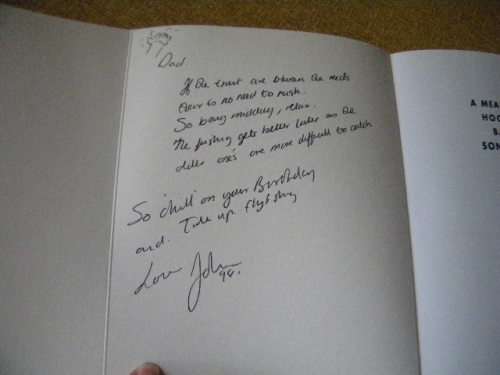 Dad
If the trout are between the reeds
there is no need to rush.
So being midday, relax.
The fishing gets better later as the
older one's are more difficult to catch
So 'chill' on your Birthday
and. Take up flyfishing
Love John
98.
A MEA
HOO
B
SON